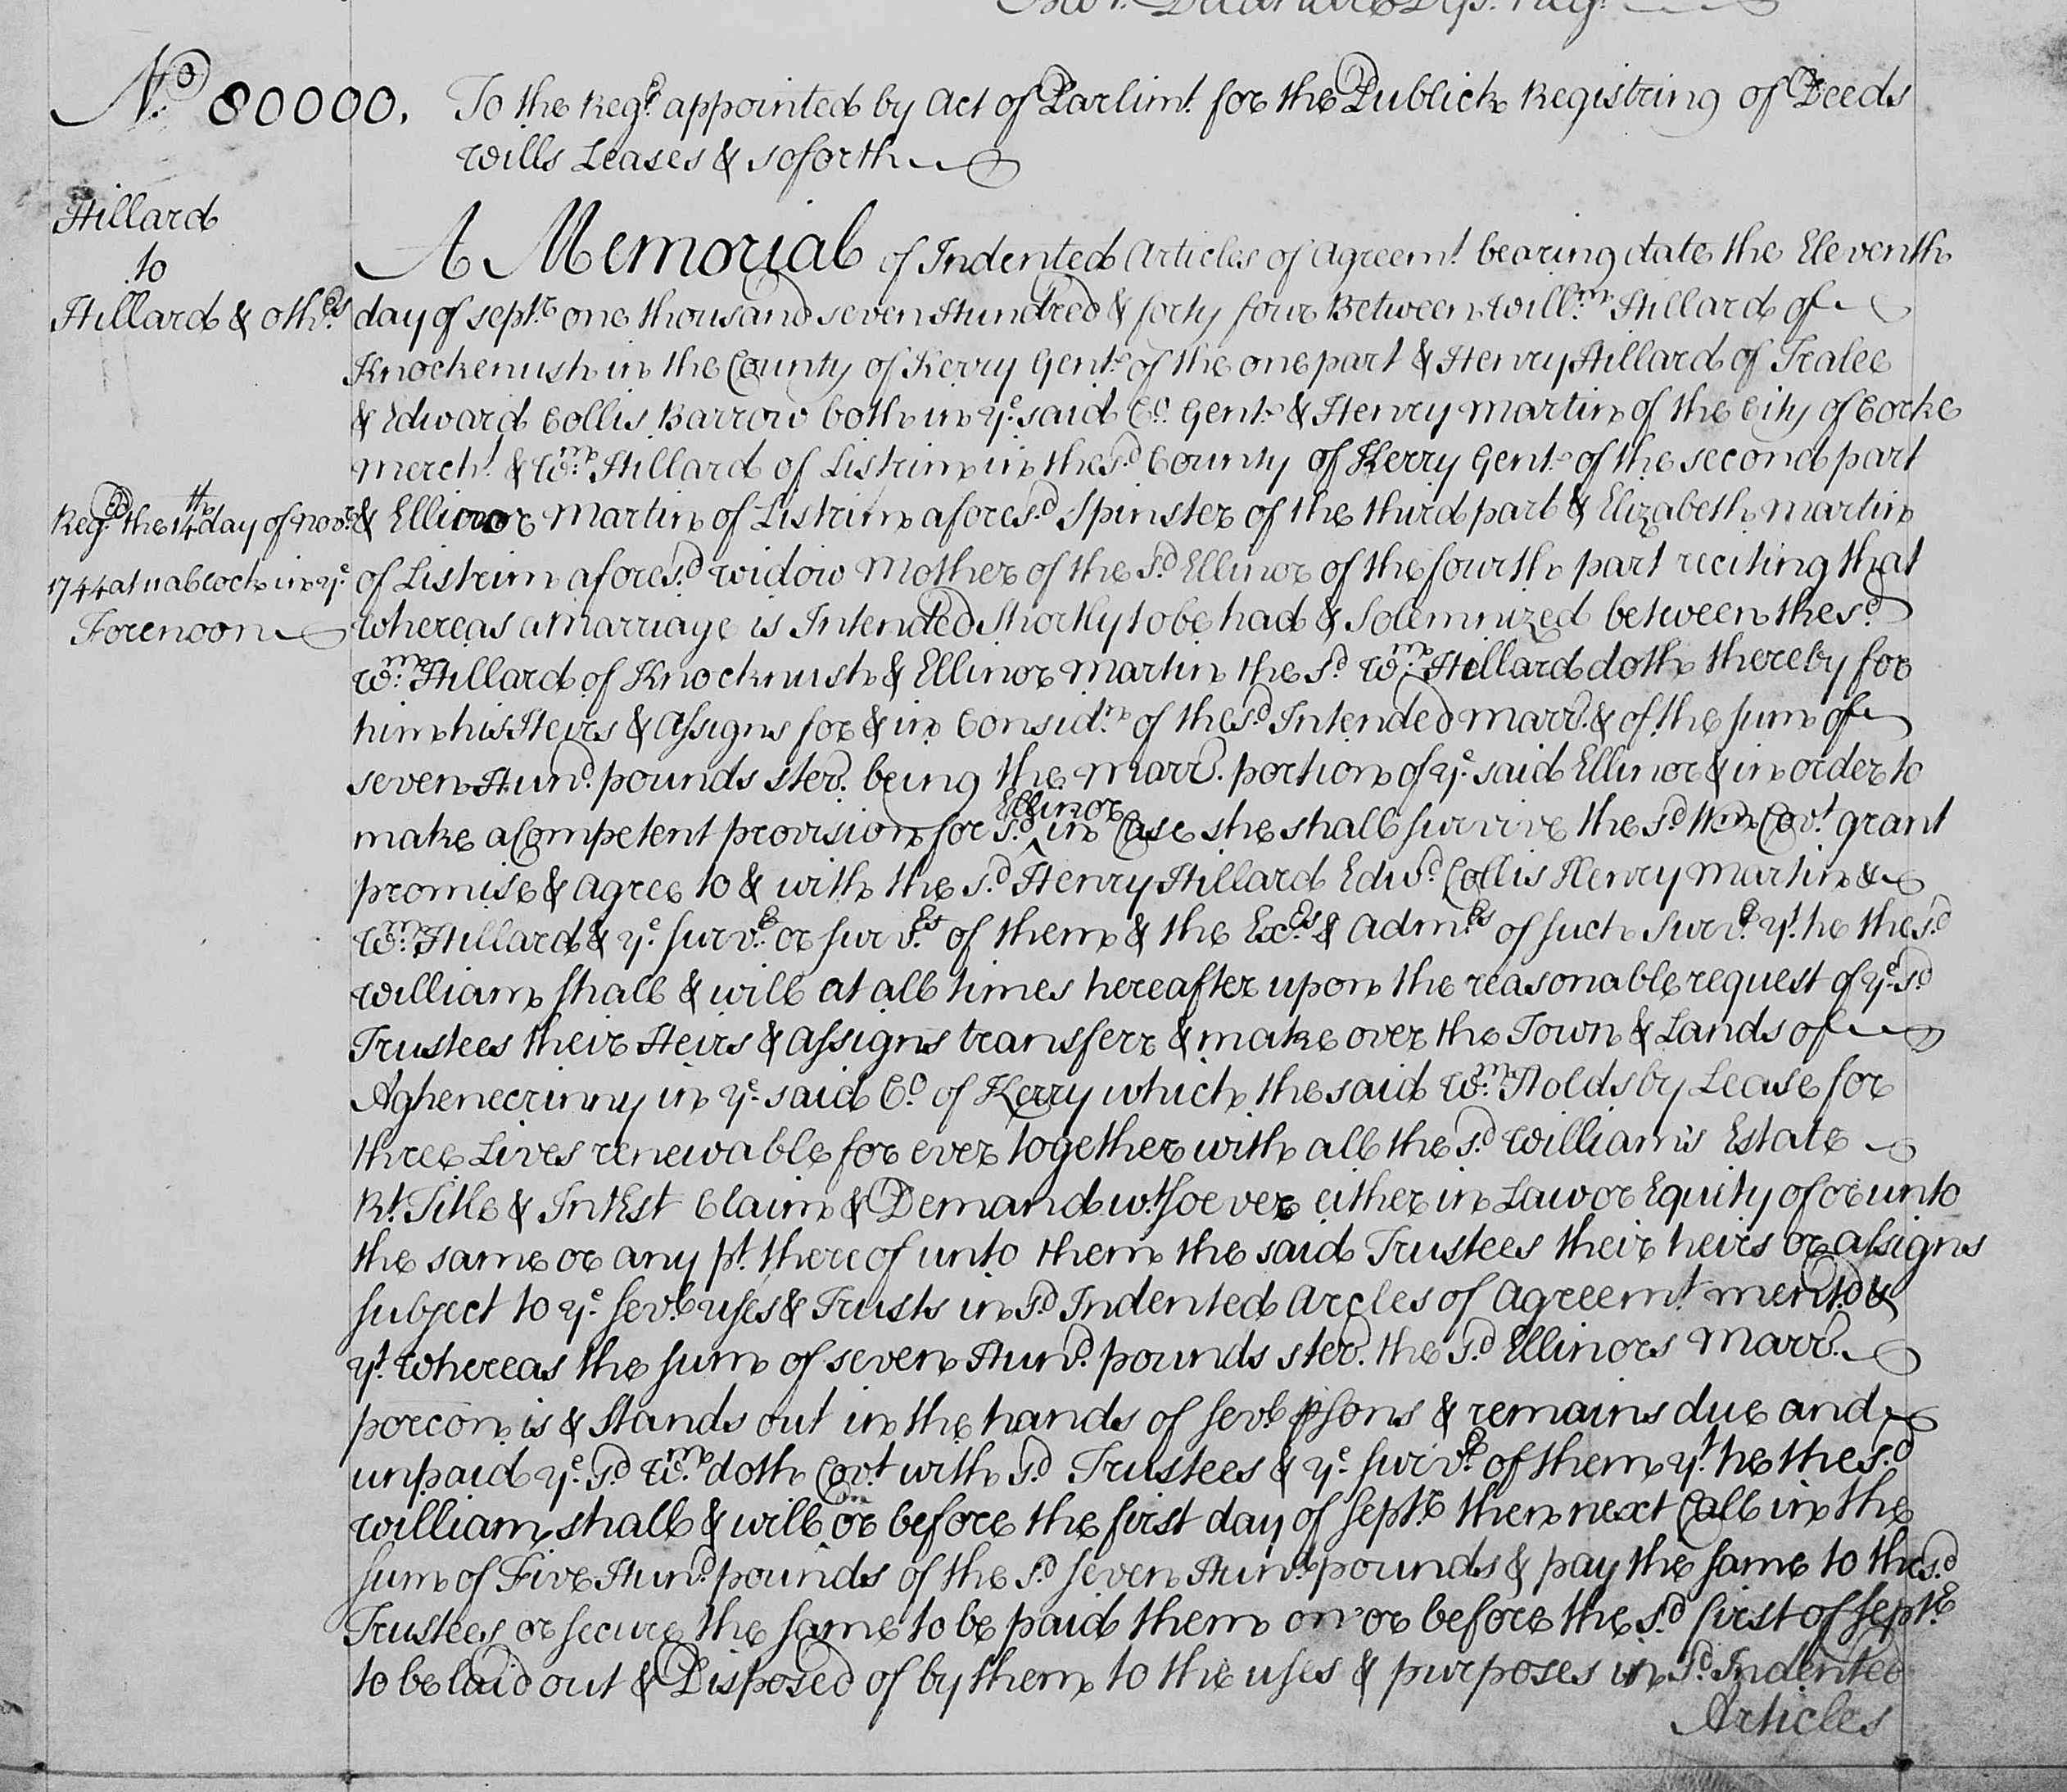 No. 80000. To the Regr. appointed by Act of Parlimt. for the Publick Registring of Deeds
Wills Leases & soforth
Hillard
to
Hillard & othrs.
A Memorial of Indented Articles of Agreemt. bearing date the Eleventh
day of Septr. one thousand seven Hundred & forty four Between Willm. Hillard of
Knockenush in the County of Kerry Gent. of the one part & Henry Hillard of Tralee
& Edward Collis Barrow both in ye. said Co. Gent. & Henry Martin of the City of Corke
Mercht. & Wm. Hillard of Listrim in the sd. County of Kerry Gent. of the second part
Regd. the 14th day of Novr.
1744 at 11 a Clock in ye.
Forenoon
& Ellinor Martin of Listrim aforesd. Spinster of the third part & Elizabeth Martin
of Listrim aforesd. Widow Mother of the sd. Ellinor of the fourth part reciting that
Whereas a Marriage is Intended Shortly to be had & Solemnized between the sd.
Wm. Hillard of Knocknush & Ellinor Martin the sd. Wm. Hillard doth thereby for
him his Heirs & Assigns for & in Considn. of the sd. Intended marr. & of the sum of
seven Hund. pounds ster. being the marr. portion of ye. said Ellinor & in order to
make a Competent provision for sd. Ellinor in Case she shall survive the sd. Wm Covt. grant
promise & agree to & with the sd. Henry Hillard Edwd. Collis Henry Martin &
Wm. Hillard & ye. survr. or survrs. of them & the Exrs. & Admrs. of such survr. yt. he the sd.
William shall & will at all times hereafter upon the reasonable request of ye. sd.
Trustees their Heirs & Assigns transferr & make over the Town & Lands of
Aghenecrinny in ye. said Co. of Kerry which the said Wm. Holds by Lease for
three Lives renewable for ever together with all the sd. William's Estate
Rt. Title & IntEst Claim & Demand wt.soever either in Law or Equity of or unto
the same or any pt. thereof unto them the said Trustees their heirs or assigns
subject to ye. sevl. uses & Trusts in sd. Indented Arcles of Agreemt. mentd. &
yt. Whereas the sum of seven Hund. pounds ster. the sd. Ellinors Marr.
porcon is & Stands out in the hands of sevl. psons & remains due and
unpaid ye. sd. Wm. doth Covt. with sd. Trustees & ye. survr. of them yt. he the sd.
William shall & will on or before the first day of Septr. then next Call in the
sum of Five Hund. pounds of the sd. seven Hund. pounds & pay the same to the sd.
Trustees or secure the same to be paid them on or before the sd. first of Septr.
to be laid out & Disposed of by them to the uses & purposes in sd. Indented
Articles